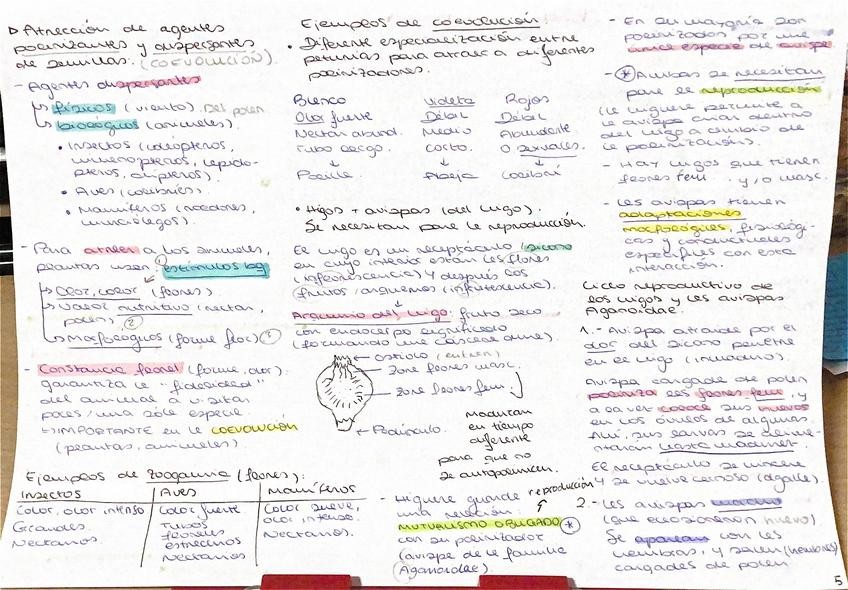 ▷ Atracción de agentes
polinizantes y dispersantes
de semillas. (COEVOLUCIÓN).
- Agentes dispersantes
↳ físicos (viento). Del polen
↳ biológicos (animales).
• Insectos (coleópteros,
himenópteros, lepidó-
pteros, dípteros).
• Aves (colibríes).
• Mamíferos (roedores,
murciélagos).
- Para atraer a los animales,
plantas usan: estímulos
↳ Olor, color (flores)
↳ Valor nutritivo (néctar,
polen) ②
↳ Morfológicos (forma flor) ①
- Constancia floral (forma, olor).
garantiza la "fidelidad"
del animal a visitar
pocas/una sola especie.
↳ IMPORTANTE en la COEVOLUCIÓN
(plantas, animales)
Ejemplos de Zoogamia (flores):
Insectos | Aves | Mamíferos
Color, olor intenso | Color fuerte | Color suave,
Grandes. | Tubos | olor intenso.
Nectarios. | florales | Nectarios.
estrechos
Nectarios
Ejemplos de coevolución.
• Diferente especialización entre
petunias para atraer a diferentes
polinizadores.
Blanco Violeta Rojos
Olor fuerte Débil Débil
Néctar abund. Medio Abundante
Tubo largo. Corto. O sexuales.
↓ ↓ ↓
Polilla Abeja Colibrí
• Higos + avispas (del higo).
Se necesitan para la reproducción.
El higo es un receptáculo (sicono)
en cuyo interior están las flores
(inflorescencia) y después los
frutos/aquenios (infrutescencia).
↓
Aquenio del higo: fruto seco
con endocarpo lignificado
(formando una cáscara dura).
Ostiolo
Zona flores masc.
Zona flores fem.
Pedúnculo.
Maduran
en tiempo
diferente
para que no
se autopolinicen.
- Higuera guarda
una relación: reproducción
MUTUALISMO OBLIGADO ⊛
con su polinizador
(avispa de la familia
Agaonidae).
- En su mayoría son
polinizados por una
única especie de avispa.
- ⊛ Ambas se necesitan
para la reproducción
(la higuera permite a
la avispa criar dentro
del higo a cambio de
la polinización).
- Hay higos que tienen
flores fem. y/o masc.
- Las avispas tienen
adaptaciones
morfológicas, fisiológi-
cas y conductuales
específicas con esta
interacción.
Ciclo reproductivo de
los higos y las avispas
Agaonidae.
1.- Avispa atraída por el
olor del sicono penetra
en el higo (inmaduro).
Avispa cargada de polen
poliniza las flores fem, y
a la vez coloca sus huevos
en los óvulos de algunas.
Allí, sus larvas se alimen-
tarán hasta madurar.
El receptáculo se
y se vuelve carnoso (agalla).
2.- Las avispas macho
(que eclosionaron huevo)
Se aparean con las
hembras, y salen (hembras)
cargadas de polen
5